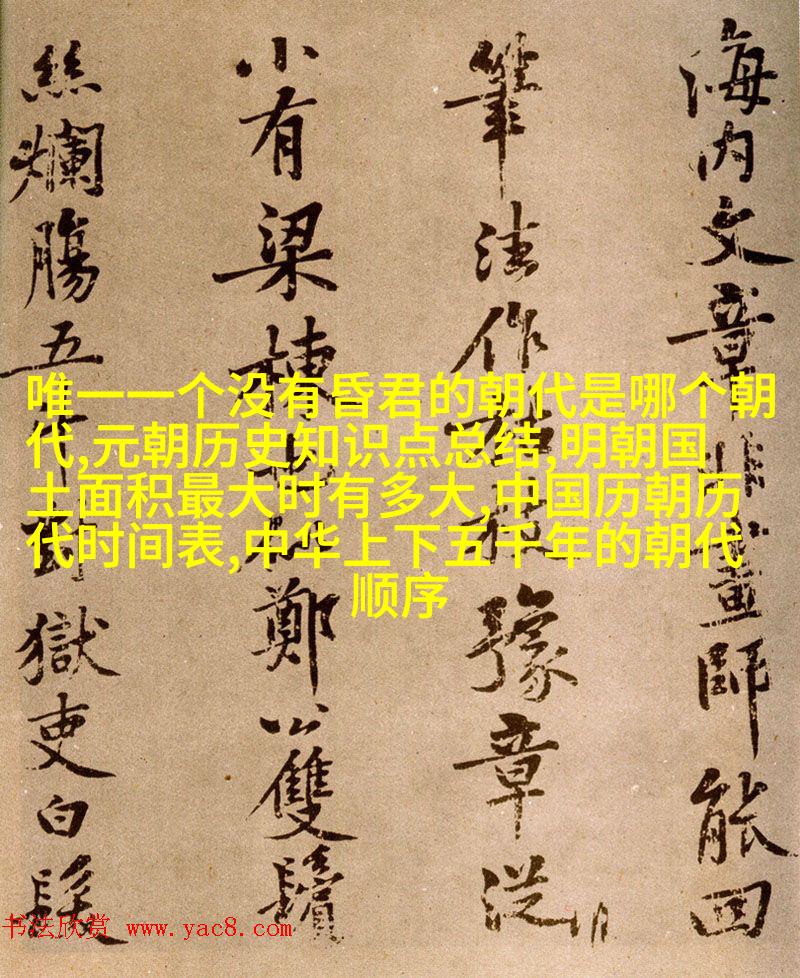 海内文章非畫師能回
筆法作枝豫章從
小有梁棟鄭公雙鬢
絲爛腸五斗獄吏白髮
唯一一个没有昏君的朝代是哪个朝
代,元朝历史知识点总结,明朝国
土面积最大时有多大,中国历朝历
代时间表,中华上下五千年的朝代
顺序
书法欣赏 www.yac8.com